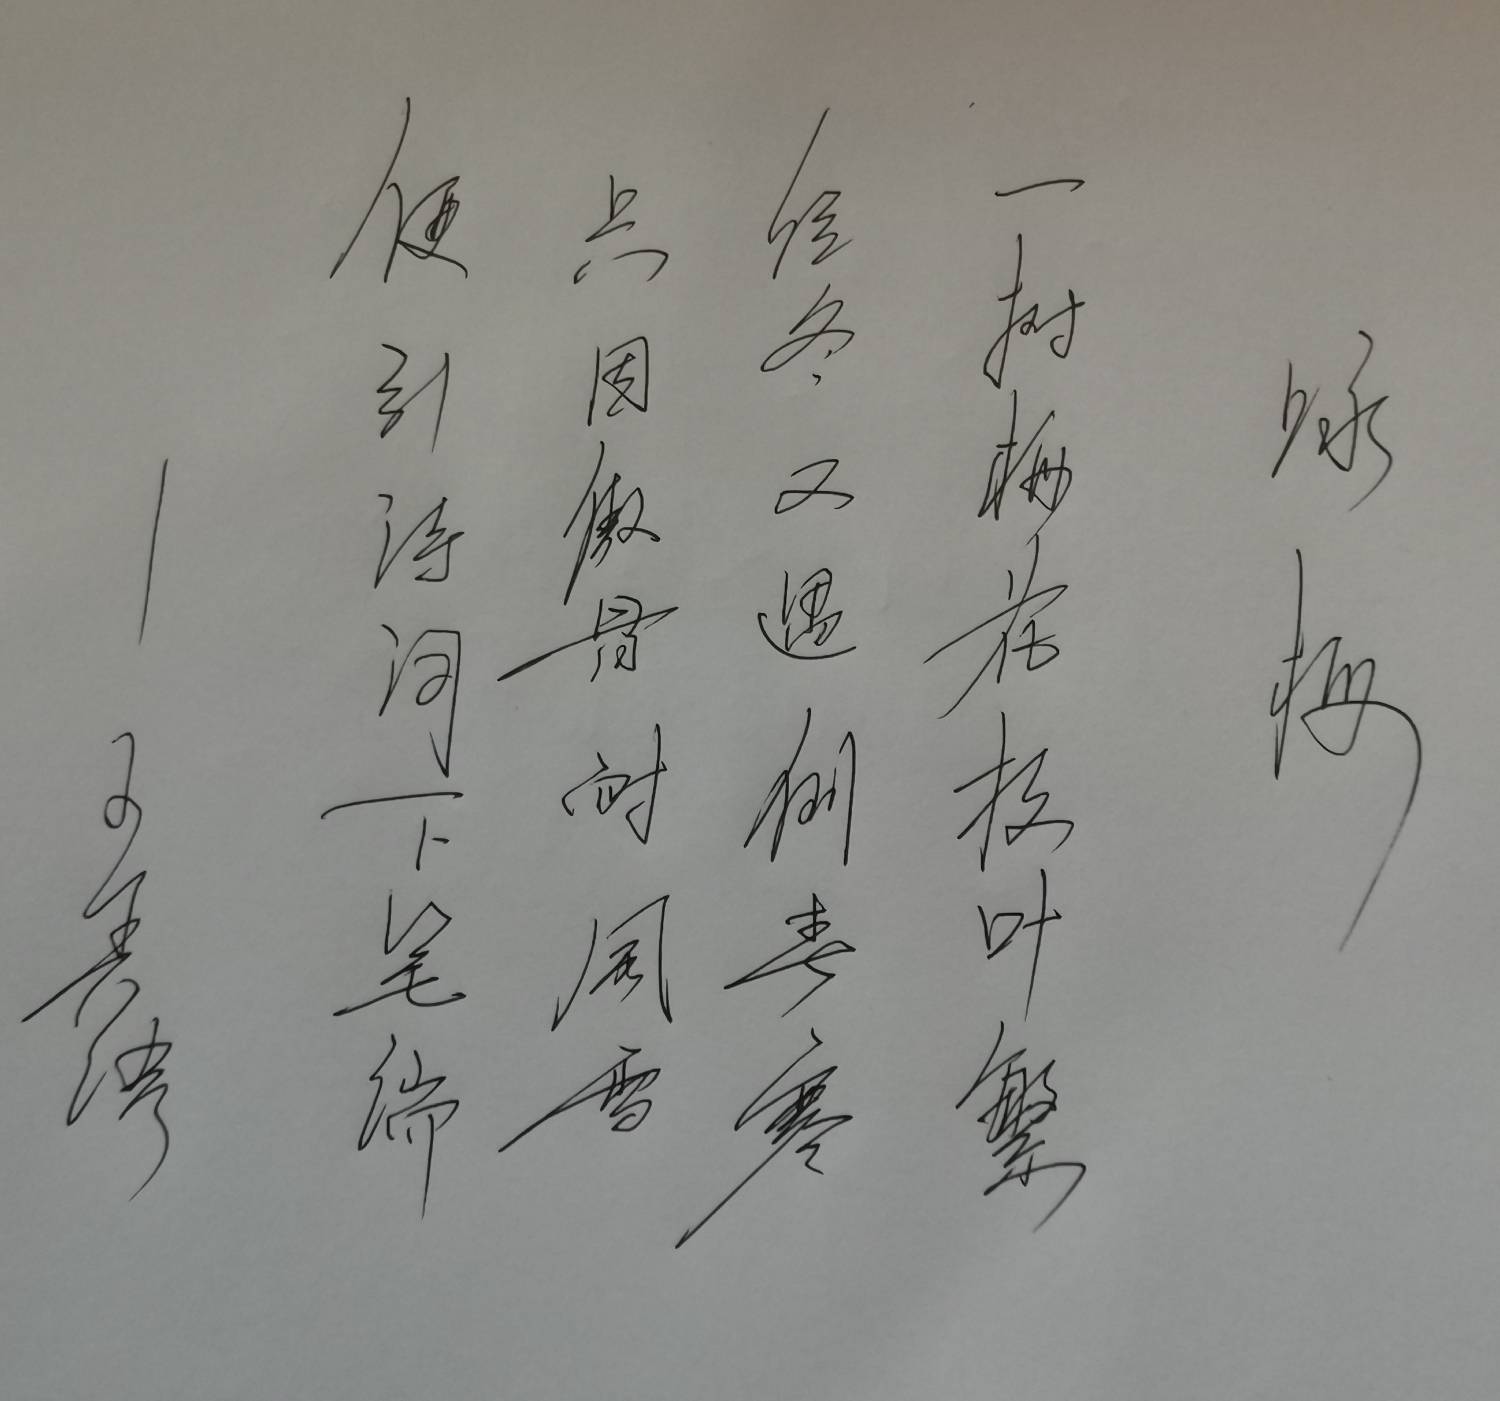 咏梅
一树梅花枝叶繁
经冬又遇倒春寒
只因傲骨耐风雪
便引诗词下笔端